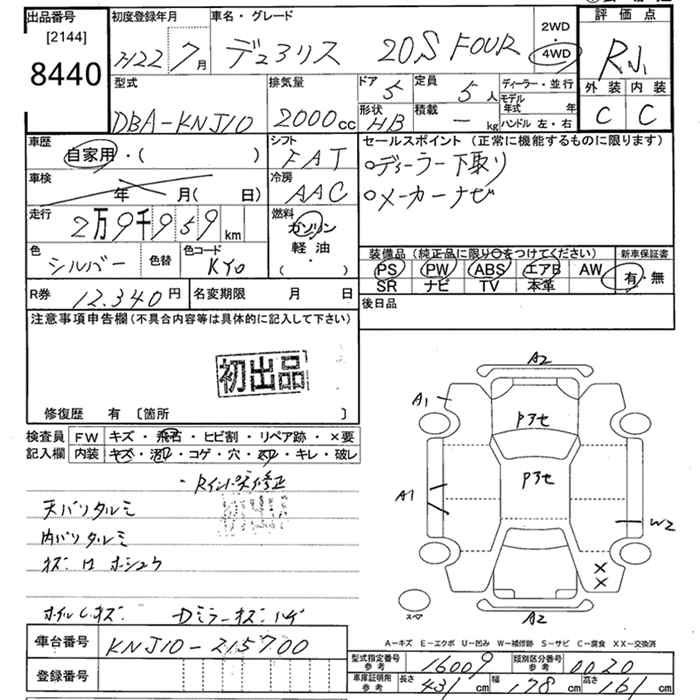 出品番号
[2144]
8440
初度登録年月
H22 7月
車名・グレード
デュエリス 20S FOUR
2WD
・
4WD
評価点
外装 内装
C C
型式
DBA-KNJ10
排気量
2000cc
ドア 5
定員 5人
形状 HB
積載 - kg
ディーラー・並行
モデル年式 年
ハンドル 左・右
車歴
自家用・( )
シフト
FAT
セールスポイント (正常に機能するものに限ります)
○ディーラー下取り
○メーカーナビ
車検
年 月( 日)
冷房
AAC
走行
2万9千959km
燃料
ガソリン
軽油
( ・ )
色
シルバー
色替
色コード
KY0
装備品 (純正品に限り○をつけてください)
新車保証書
PS PW ABS エアB AW
SR ナビ TV 本革
有・無
R券 12,340円
名変期限 月 日
後日品
注意事項申告欄(不具合内容等は具体的に記入して下さい)
初出品
修復歴 有 〔箇所 〕
検査員 FW キズ・飛石・ヒビ割・リペア跡・×要
記入欄 内装 キズ・汚れ・コゲ・穴・スレ・キレ・破レ
天バリタルミ
内バリタルミ
ホイルCキズ Dミラーキズハゲ
A2
A1
Pアセ
Pアセ
A1
W2
スペア
A2
A-キズ E-エクボ U-凹み W-補修跡 S-サビ C-腐食 XX-交換済
車台番号 KNJ10-215700
登録番号
型式指定番号 参考 16009
類別区分番号 参考 0020
車庫証明用 参考 長さ 431cm 幅 178cm 高さ 161cm